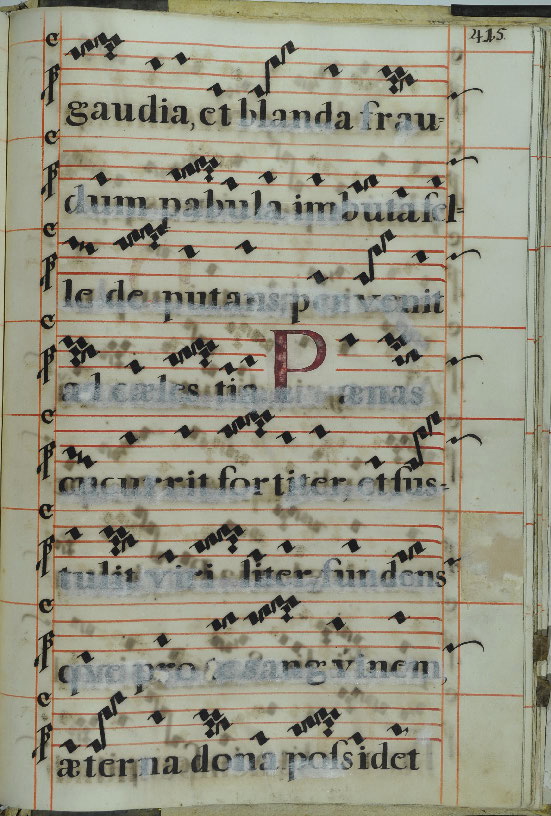 415.
gaudia, et blanda frau=
dum pabula imbuta fel=
le de putans, pervenit
ad cælestia P œnas
cucurrit fortiter, et sus-
tulit viriliter, fundens
que pro te sanguinem,
æterna dona possidet